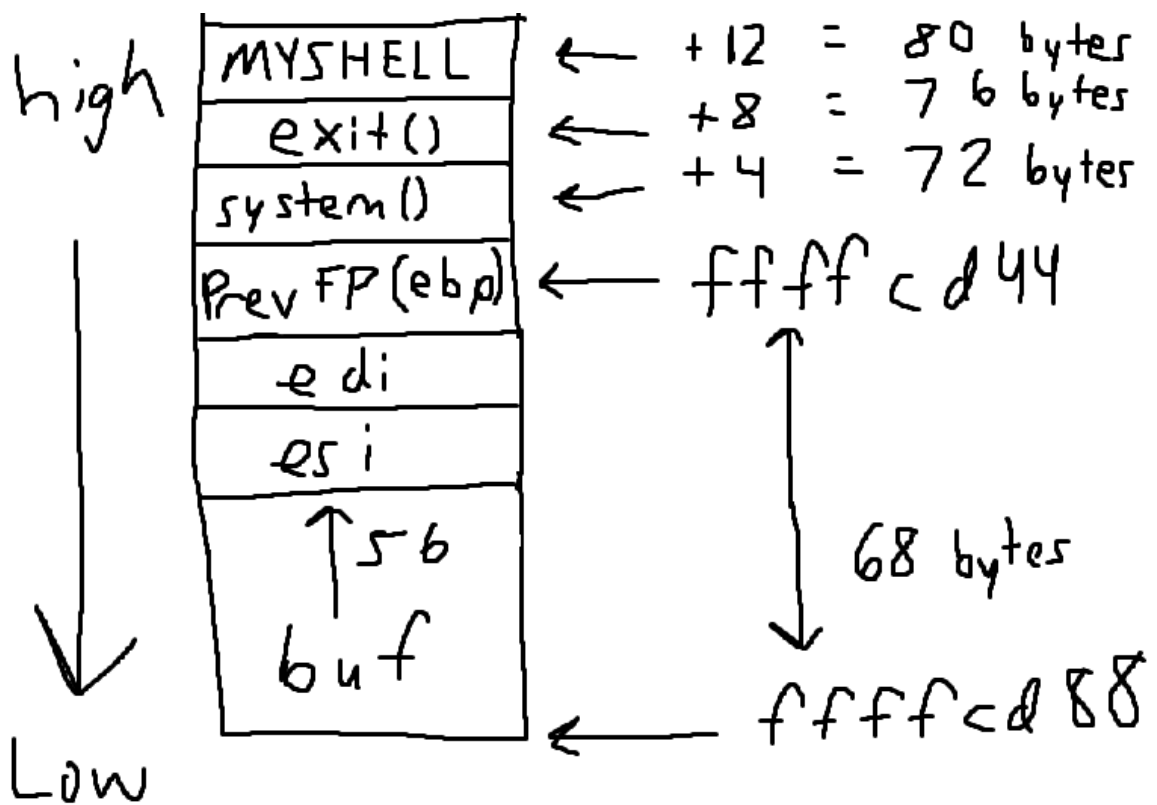 high
MYSHELL
+12 = 80 bytes
exit()
+8 = 76 bytes
system()
+4 = 72 bytes
Prev FP (ebp)
ffffcd44
edi
esi
56
buf
68 bytes
ffffcd88
Low